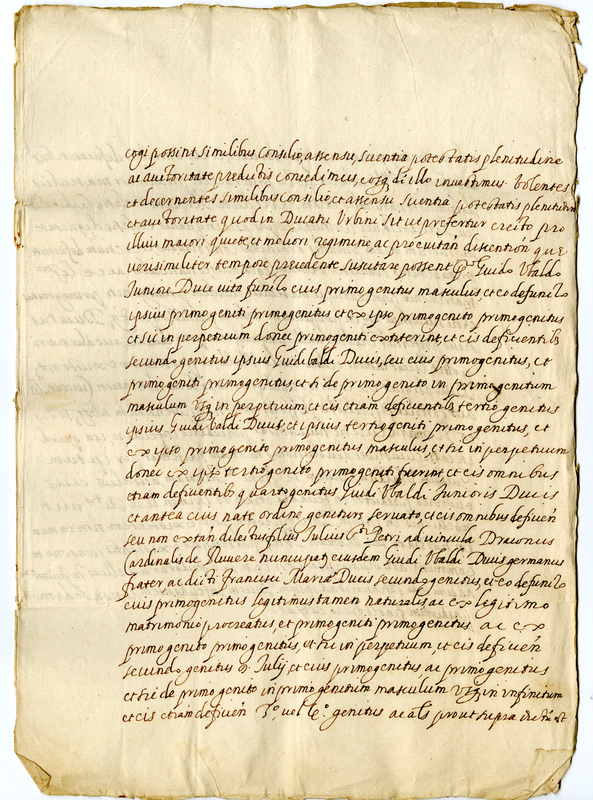 cogi possint similibus Consilio, assensu, scientia potestatis plenitudine
ac auctoritate predictis concedimus, eosq; di illo investimus. Volentes
et decernentes similibus Consilio, et assensu scientia potestatis plenitudin
et auctoritate quod in Ducatu Urbini sic ut prefertur erecto pro
illius maiori quiete, et meliori regimine ac pro evitan discention que
verisimiliter tempore precedente suscitare possent Guido Ubaldo
Juniore Duce vita functo eius primogenitus masculus, et eo defuncto
ipsius primogeniti primogenitus et ex ipso primogenito primogenitus
et sic in perpetuum donec primogeniti extiterint, et eis deficientib
secundo genitus ipsius Guidibaldi Ducis, seu eius primogenitus, et
primogeniti primogenitus, et sic de primo genito in primogenitum
masculum Usq in perpetuum, et eis etiam deficientib tertio genitus
ipsius Guidi baldi Ducis, et ipsius tertiogeniti primogenitus, et
ex ipso primogenito primogenitus masculus, et sic in perpetuum
donec ex ipso tertiogenito primogeniti fuerint, et eis omnibus
etiam deficientib quartogenitus Guidi Ubaldi Junioris Ducis
et antea eius nate ordine geniture servato, et eis omnibus deficien
seu non extan dilectus filius Julius S.ti Petri ad vincula Diaconus
Cardinalis de Ruvere nuncupat, eiusdem Guidi Ubaldi Ducis germanus
frater, ac dicti Francisci Mariae Ducis secundogenitus, et eo defuncto
eius primogenitus legitimus tamen naturalis ac ex legitimo
matrimonio procreatus, et primogeniti primogenitus ac ex
primogenito primogenitus, et sic in perpetuum, et eis deficien
secundo genitus d. Julij, et eius primogenitus ac primogenitus
et sic de primo genito in primogenitum masculum Usq in infinitum
et eis etiam deficien 3.o vel 4.o genitus ac als prout supra dictu est